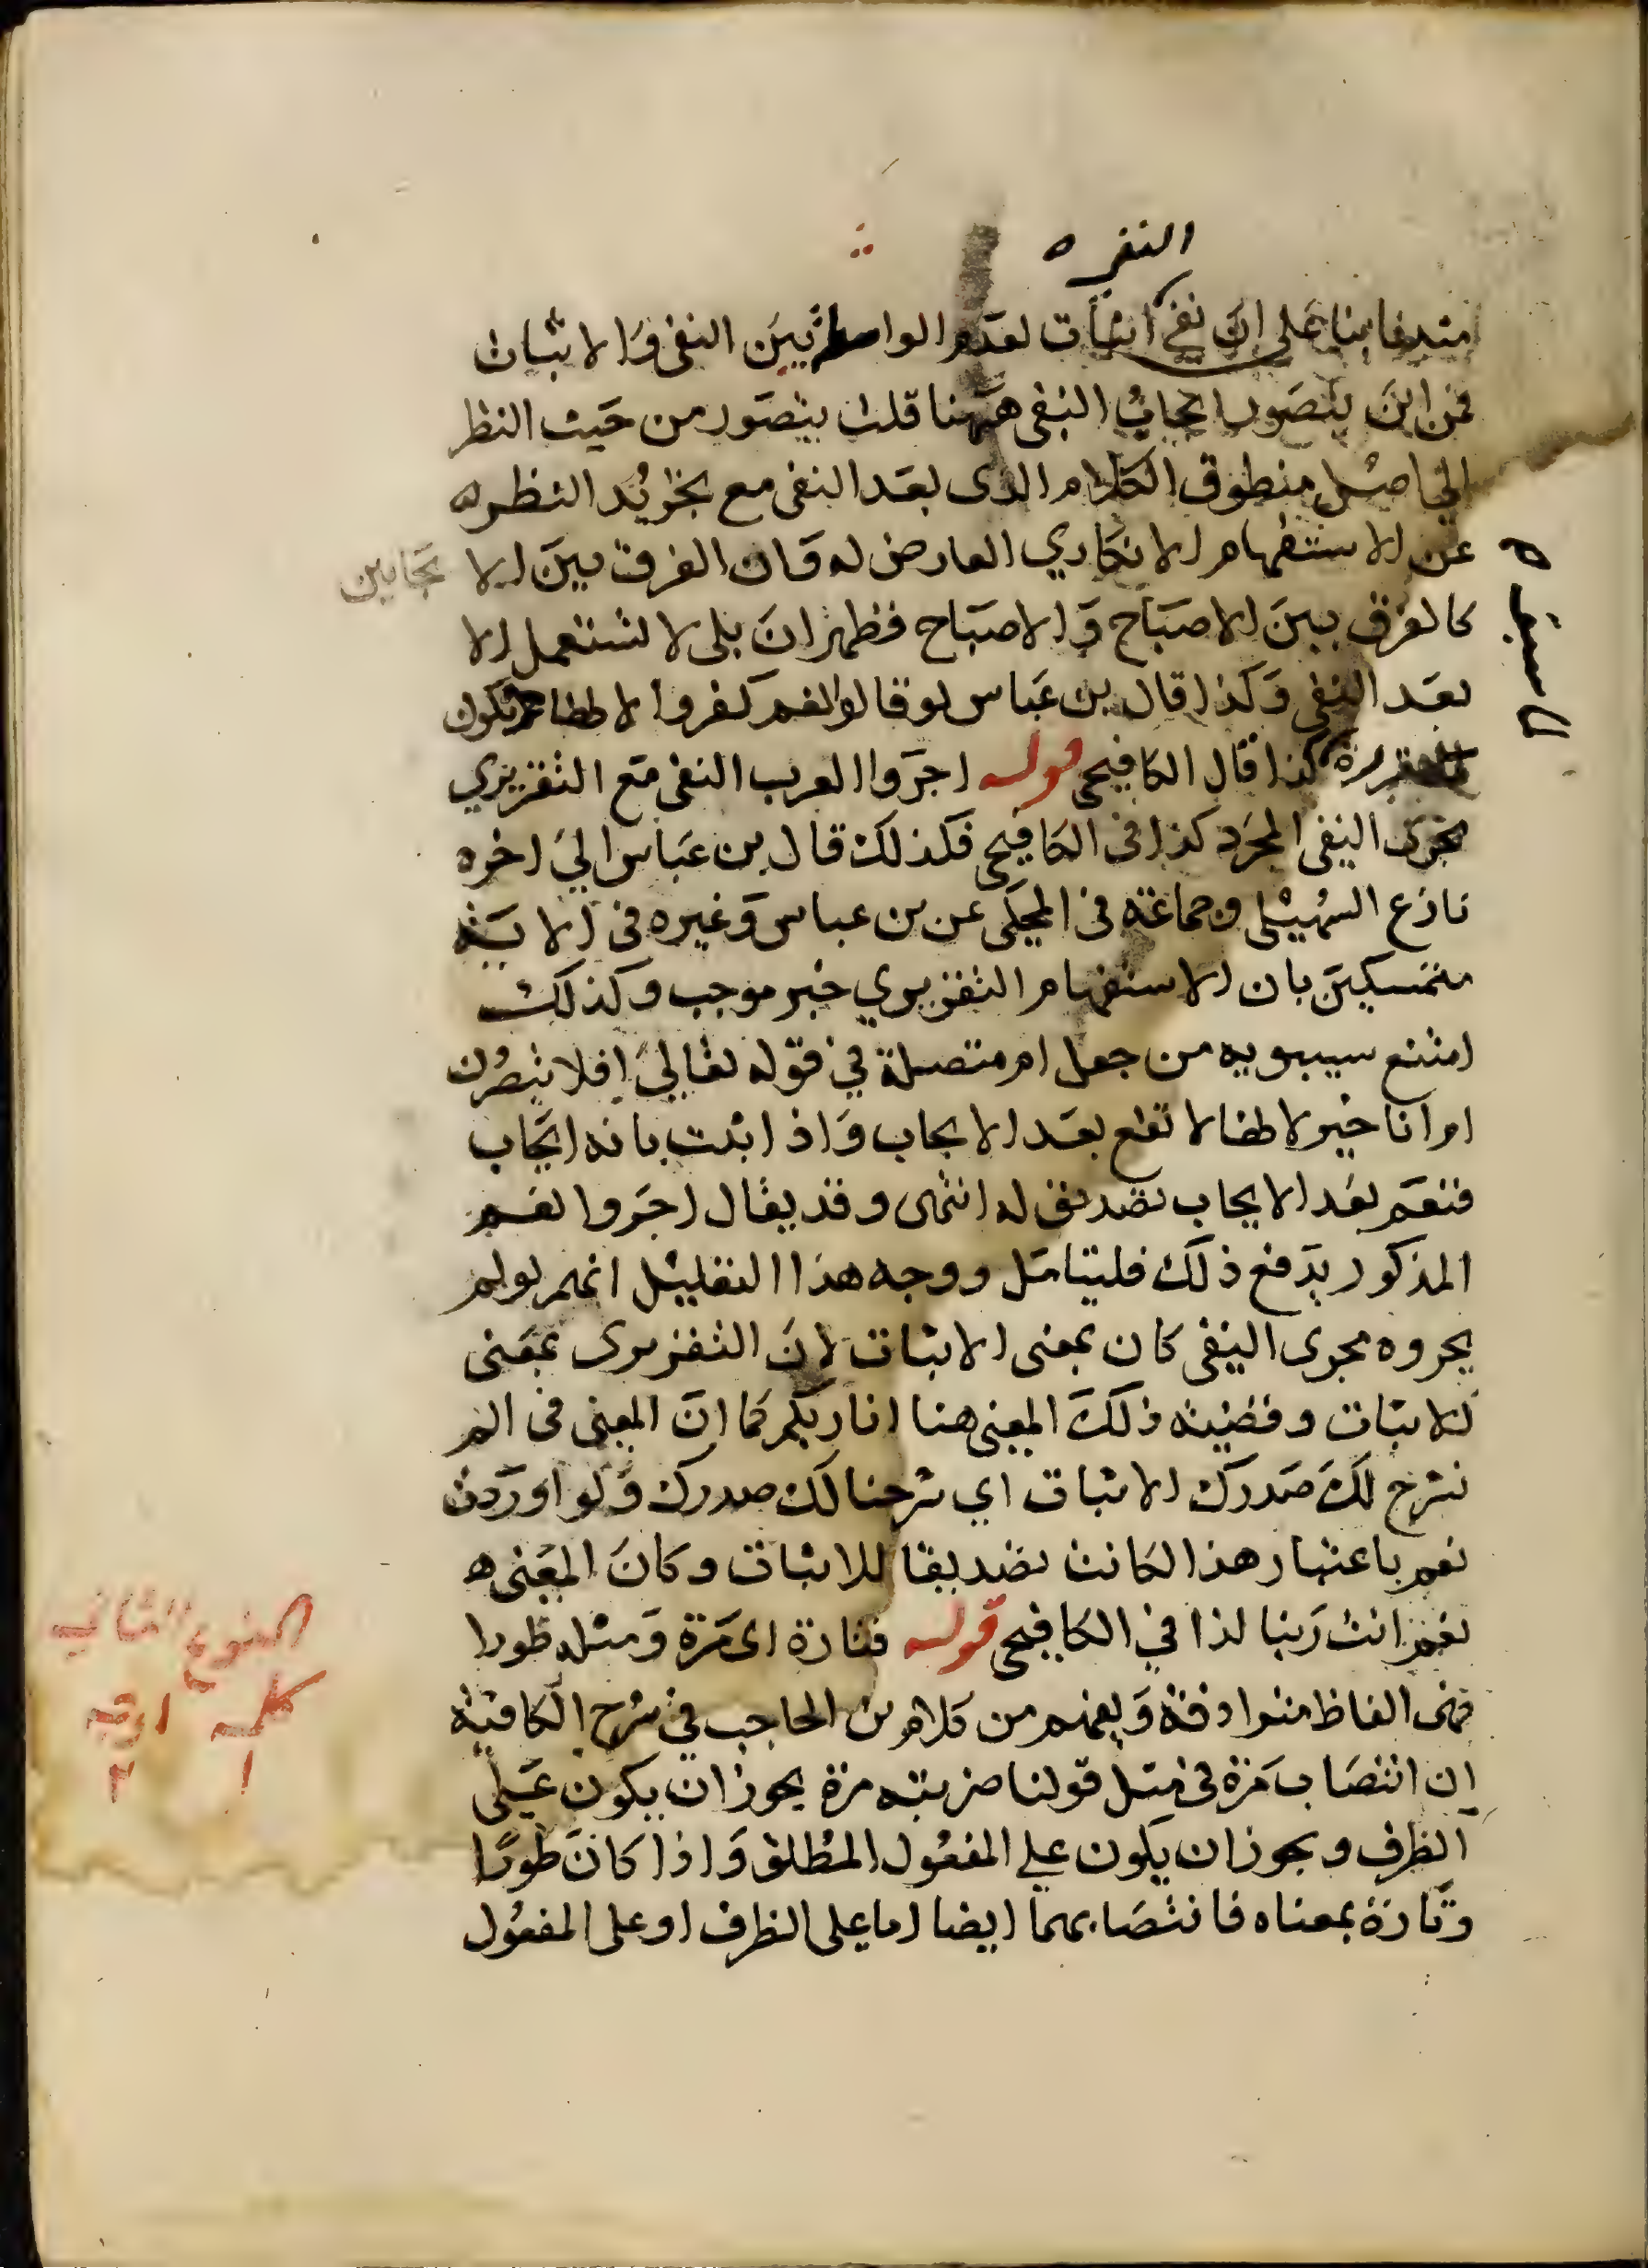 النفي ه
مثلها بنا على ان نفي اثبات لعدم الواسطة بين النفي والاثبات
فمن اين يتصور ايجاب النفي ههنا قلت يتصور من حيث النظر
الى اصل منطوق الكلام الذى بعد النفى مع تجريد النظر له
عن الاستفهام الانكاري العارض له فان الفرق بين الا يجابين
كالفرق بين الاصباح والاصباح فظهر ان بلى لا تستعمل الا
بعد النفى وكذا قال بن عباس لو قالوا نعم كفروا لا تكون
كذا قال الكافيجى قوله اجروا العرب النفى مع التقريري
مجرى النفي المجرد كذا فى الكافيجى فكذلك قال بن عباس الي اخره
نازع السهيلى وجماعة فى المحكى عن بن عباس وغيره فى الاية
متمسكين بان الاستفهام التقريري خبر موجب وكذلك
امتنع سيبويه من جعل ام متصلة في قوله تعالى افلا تبصرون
ام انا خير لانها لا تقع بعد الايجاب واذا ثبت بانه ايجاب
فنعم بعد الايجاب تصديق له انتهى وقد يقال اجروا نعم
المذكور يدفع ذلك فليتامل ووجه هذا التعليل انهم لو لم
يجروه مجرى النفي كان بمعنى الاثبات لان التقريرى بمعنى
الاثبات وقضية ذلك المعنى هنا انا ربكم كما ان المعنى فى الم
نشرح لك صدرك الاثبات اي شرحنا لك صدرك ولو اوردت
نعم باعتبار هذا لكانت تصديقا للاثبات وكان المعنى ه
نعم انت ربنا كذا في الكافيجى قوله فتارة اى مرة ومثله طورا
فهى الفاظ مترادفة ويفهم من كلام بن الحاجب في شرح الكافية
ان انتصاب مرة فى مثل قولنا ضربته مرة يجوز ان يكون على
الظرف ويجوز ان يكون على المفعول المطلق واذا كان طورا
وتارة بمعناه فانتصابهما ايضا اما على الظرف او على المفعول
النوع الثاني
كلمة اوجه
١ ٢